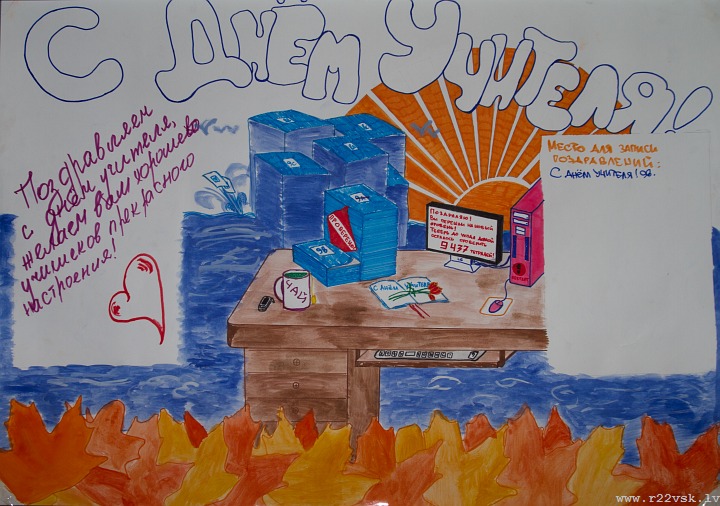 С Днём Учителя!
Поздравляем
с днём учителя,
желаем вам хороших
учеников прекрасного
настроения!
Место для записи
поздравлений:
С Днём учителя! 9в.
Поздравляю!
Вы перешли на новый
уровень!
Теперь до ухода домой
осталось проверить
9 437 тетрадей!
Проверены
ЧАЙ
С Днём учителя
www.r22vsk.lv